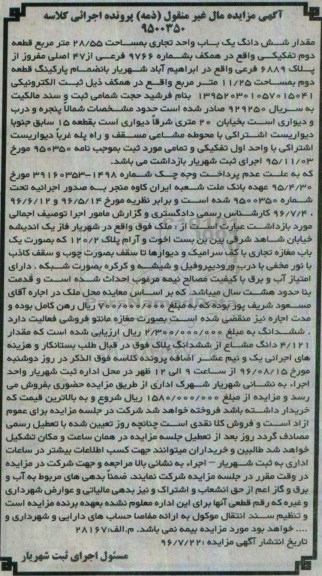 آگهی مزایده مال غیر منقول (ذمه) پرونده اجرائی کلاسه
۹۵۰۰۳۵۰
مقدار شش دانگ یک باب واحد تجاری بمساحت ۲۸/۵۵ متر مربع قطعه
دوم تفکیکی واقع در همکف بشماره ۹۷۶۶ فرعی از ۴۷ اصلی مفروز از
پلاک ۶۸۸۹ فرعی واقع در ابراهیم آباد شهریار بانضمام پارکینگ قطعه
دوم بمساحت ۱۱/۲۵ متر مربع واقع در همکف ذیل ثبت الکترونیکی
۱۳۹۵۲۰۳۰۱۰۵۷۰۱۵۰۴۱ بنام فرشید حجت شمامی ثبت و سند مالکیت
به سریال ۹۲۹۲۵۰ صادر شده است حدود مشخصات شمالاً پنجره و درب
و دیواری است بخیابان ۲۰ متری شرقاً دیواری است بقطعه ۱۵ سابق جنوبا
دیواریست اشتراکی با محوطه مشاعی مسقف و راه پله غرباً دیواریست
اشتراکی با واحد اول تفکیکی و تمامی مورد ثبت بموجب نامه ۹۵۰۳۵۰ مورخ
۹۵/۱۱/۰۳ اجرای ثبت شهریار بازداشت می باشد.
که به علت عدم پرداخت وجه چک شماره ۱۴۹۸-۳۹۱۶۰۳۵۳ مورخ
۹۵/۴/۳۰ عهده بانک ملت شعبه ایران کاوه منجر به صدور اجرائیه تحت
شماره ۹۵۰۰۳۵۰ شده است و برابر نظریه مورخ ۹۶/۵/۱۴ و ۹۶/۶/۱۲
و ۹۶/۷/۴ کارشناس رسمی دادگستری و گزارش مامور اجرا توصیف اجمالی
مورد بازداشت عبارت است از : ملک فوق واقع در شهریار فاز یک اندیشه
خیابان شاهد شرقی بین بن بست اخوت و آرام پلاک ۱۲۰/۲ که بصورت یک
باب مغازه تجاری با کف سرامیک و دیوارها تا سقف بصورت چوب و سقف کاذب
با نور مخفی با درب ورودی پروفیل و شیشه و کرکره بصورت شبکه . دارای
امتیاز آب و برق با کیفیت مصالح نیمه مرغوب احداث شده است و قدمت
بنا حدود هشت سال میباشد. که بر اساس معاینه محل ملک در اجاره آقای
مسعود شریف پور بوده که مبلغ ریال رهن کامل بوده و
مدت اجاره نیز منقضی شده است بصورت مغازه مانتو فروشی فعالیت دارد
. ششدانگ به مبلغ ۲/۳۰۰/۰۰۰/۰۰۰ ریال ارزیابی شده است که مقدار
۴/۱۲۱ دانگ مشاع از ششدانگ پلاک فوق در قبال طلب بستانکار و هزینه
های اجرائی یک و نیم عشر اضافه پرونده کلاسه فوق الذکر در روز دوشنبه
مورخ ۹۶/۰۸/۱۵ از ساعت ۹ الی ۱۲ ظهر در محل اداره ثبت شهریار واحد
اجراء به نشانی شهریار شهرک اداری از طریق مزایده حضوری بفروش می
رسد و مزایده از مبلغ ۱۵۸۰/۰۰۰/۰۰۰ ریال شروع و به بالاترین قیمت که
خریدار داشته باشد فروخته خواهد شد شرکت در جلسه مزایده برای عموم
آزاد است و فروش کلا نقدی است چنانچه روز تعیین شده با تعطیل رسمی
مصادف گردد روز بعد از تعطیل جلسه مزایده در همان ساعت و مکان تشکیل
خواهد شد طالبین و خریداران میتوانند جهت کسب اطلاعات بیشتر در ساعات
اداری به ثبت شهریار – اجراء به نشانی بالا مراجعه و جهت شرکت در مزایده
در وقت مقرر در جلسه مزایده شرکت نمایند، ضمناً بدهی های مربوط به آب و
برق و گاز اعم از حق انشعاب و اشتراک و نیز بدهی مالیاتی و عوارض شهرداری
و غیره که رقم قطعی آنها برای این اداره معلوم نشده بعهده برنده مزایده است
و تنظیم سند انتقال موکول به ارائه مفاصا حساب های دارایی و شهرداری و
.... خواهد بود مورد مزایده بیمه نمی باشد. م.الف: ۲۸۱۶۷
تاریخ انتشار آگهی مزایده : ۹۶/۷/۲۲
مسئول اجرای ثبت شهریار